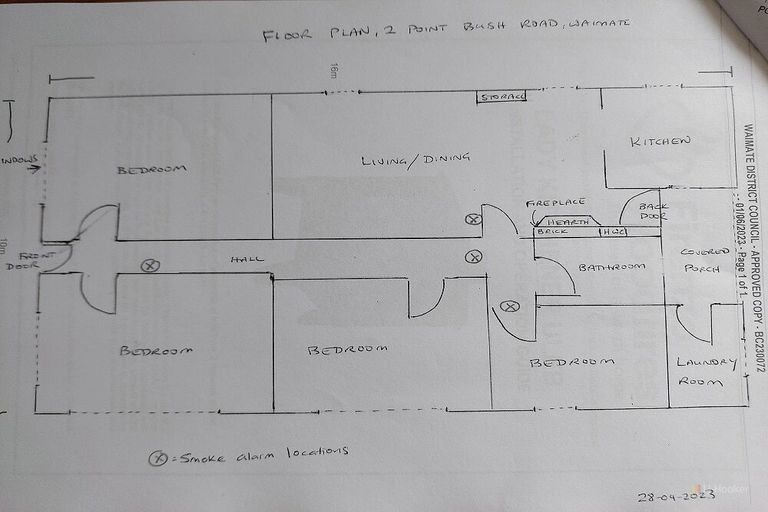 FLOOR PLAN, 2 POINT BUSH ROAD, WAIMATE
16m
STORAGE
KITCHEN
INDOWS
BEDROOM
LIVING/DINING
FIREPLACE
BACK
DOOR
HEARTH
BRICK
HWC
FRONT
DOOR
10m
HALL
BATHROOM
COVERED
PORCH
BEDROOM
BEDROOM
BEDROOM
LAUNDRY
ROOM
WAIMATE DISTRICT COUNCIL - APPROVED COPY - BC230072
- 01/06/2023 - Page 1 of 1
X = Smoke alarm locations
28-04-2023
Hooker